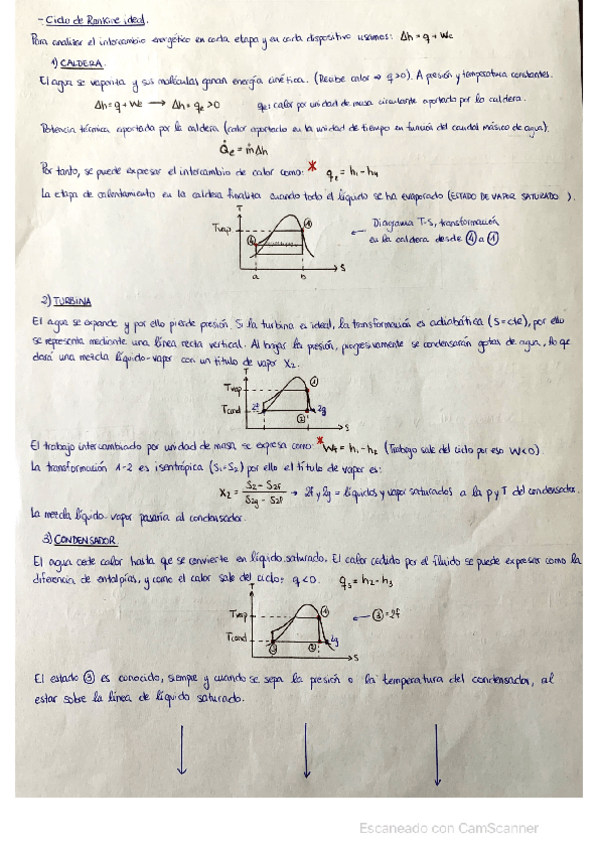 - Ciclo de Rankine ideal.
Para analizar el intercambio energético en cada etapa y en cada dispositivo usamos: Δh = q + Wc
1) CALDERA.
El agua se vaporiza y sus moléculas ganan energía cinética. (Recibe calor → q>0). A presión y temperatura constantes.
Δh = q + Wc → Δh = qe > 0 qe: calor por unidad de masa circulante aportado por la caldera.
Potencia térmica aportada por la caldera (calor aportado en la unidad de tiempo en función del caudal másico de agua).
Q̇e = ṁΔh
Por tanto, se puede expresar el intercambio de calor como: * qe = h1 - h4
La etapa de calentamiento en la caldera finaliza cuando todo el líquido se ha evaporado (ESTADO DE VAPOR SATURADO).
T
Tvap
4
1
a
b
S
← Diagrama T-S, transformación
en la caldera desde 4 a 1
2) TURBINA
El agua se expande y por ello pierde presión. S la turbina es ideal, la transformación es adiabática (S=cte), por ello
se representa mediante una línea recta vertical. Al bajar la presión, progresivamente se condensarán gotas de agua, lo que
dará una mezcla líquido-vapor con un título de vapor X2.
T
Tvap
Tcond
1
2f
2
2g
S
El trabajo intercambiado por unidad de masa se expresa como: * Wt = h1 - h2 (Trabajo sale del ciclo por eso W<0).
La transformación 1-2 es isentrópica (S1=S2) por ello el título de vapor es:
X2 = S2 - S2f / S2g - S2f → 2f y 2g = líquidos y vapor saturados a la p y T del condensador.
La mezcla líquido-vapor pasaría al condensador.
3) CONDENSADOR.
El agua cede calor hasta que se convierte en líquido saturado. El calor cedido por el fluido se puede expresar como la
diferencia de entalpías, y como el calor sale del ciclo: q<0. qs = h2 - h3
T
Tvap
Tcond
1
3
2
2g
S
← 3 = 2f
El estado 3 es conocido, siempre y cuando se sepa la presión o la temperatura del condensador, al
estar sobre la línea de líquido saturado.
Escaneado con CamScanner